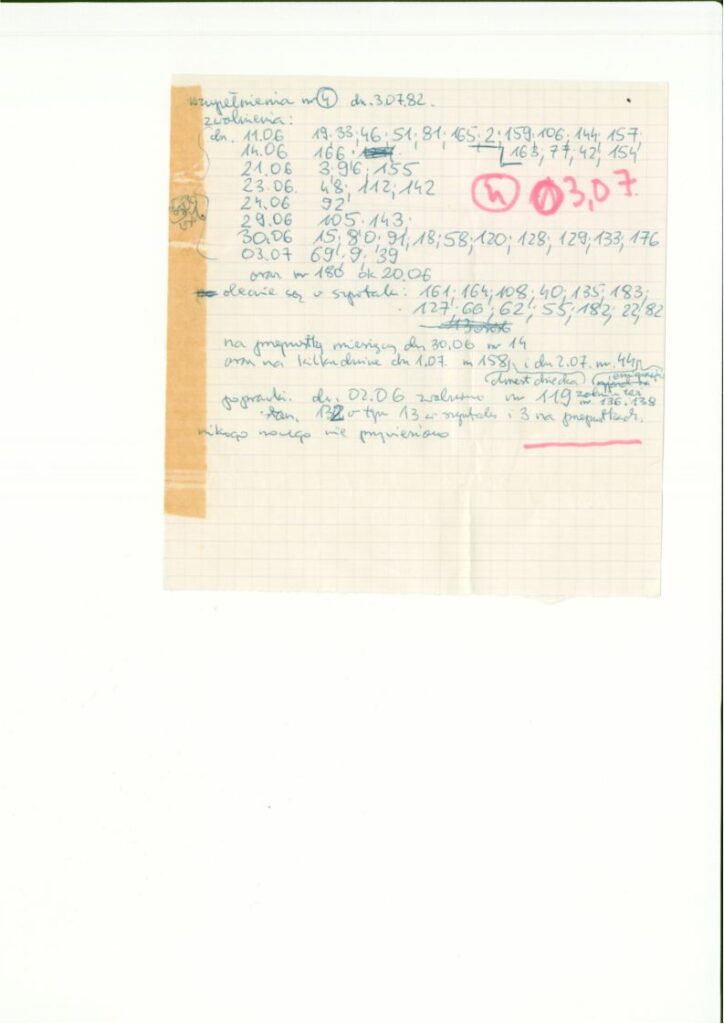 uzupełnienia nr 4 dn. 3.07.82.
zwolnienia:
dn. 11.06 19; 33; 46; 51; 81; 165; 2; 159; 106; 144; 157;
163; 77; 42; 154
14.06 166
21.06 3; 96; 155
23.06. 48; 112; 142
24.06 92
29.06 105; 143
30.06 15; 80; 91; 18; 58; 120; 128; 129; 133; 176
03.07 69; 9; 39
4 3,07.
oraz nr 180 ok 20.06
obecnie są w szpitalu: 161; 164; 108; 40; 135; 183;
127; 66; 62; 55; 182; 22; 82
na przepustkę miesięczną dn 30.06 nr 14
oraz na kilkudniowe dn 1.07. nr 158 i dn 2.07. nr. 44
śmierć dziecka
poprawki: dn. 02.06 zwolniono nr 119
nr. 136 i 138
stan. 132 w tym 13 w szpitalu i 3 na przepustkach.
nikogo nowego nie przywieziono